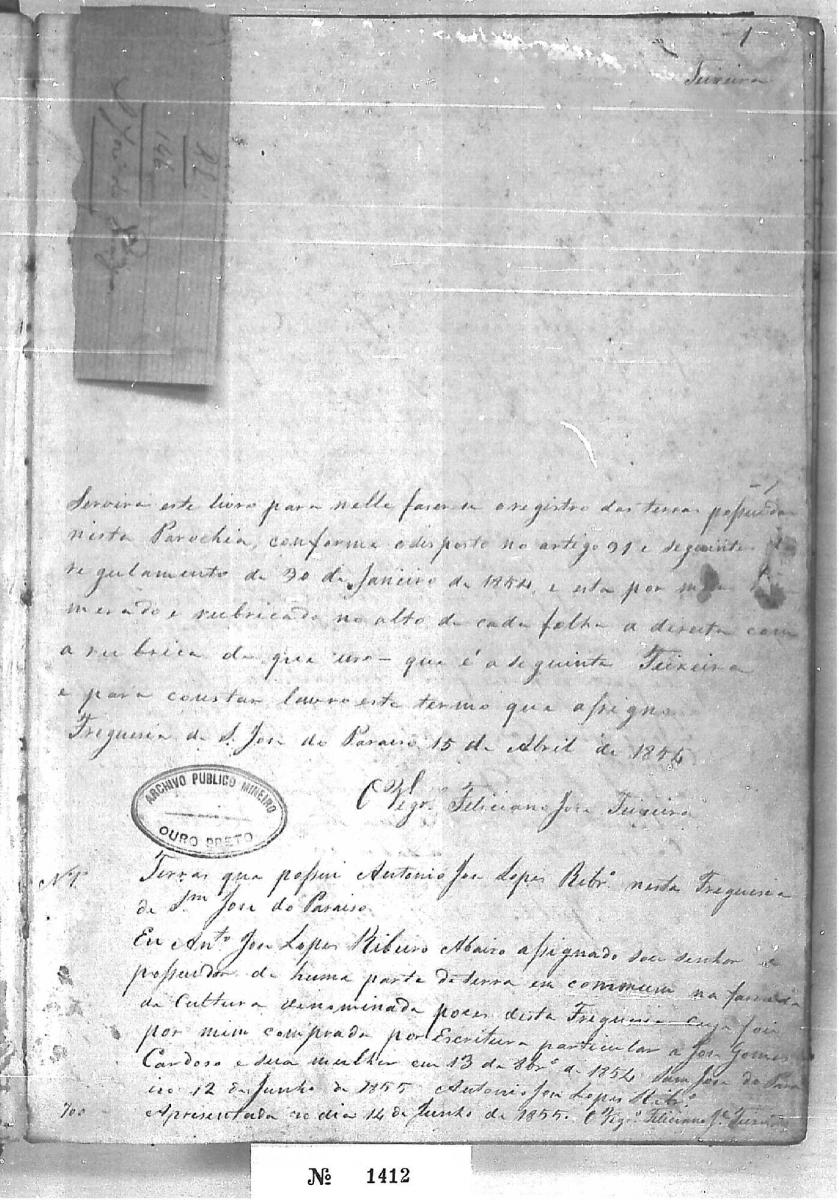 1
Teixeira
Servirá este livro para nelle faserse o registro das terras possuidas
nésta Parochia, conforme o desposto no artigo 91 e seguintes do
regulamento de 30 de Janeiro de 1854, e esta por mim nu-
merado e rubricado no alto de cada folha a direita com
a rubrica de que uso - que é a seguinte Teixeira
e para constar lavro este termo que assigno
Freguesia de S. José do Paraiso 15 de Abril de 1855
O Vigr.º Feliciano José Teixeira
ARCHIVO PUBLICO MINEIRO
OURO PRETO
Nº 1º
Terras que possui Antonio José Lopes Ribr.º nesta Freguesia
de S.m José do Paraiso
Eu Ant.º José Lopes Ribeiro Abaixo assignado sou senhor e
possuidor de huma parte de terra em commum na fasenda
de Cultura denominada desta Freguesia cuja foi
por mim comprada por Escritura particular a José Gomes
Cardoso e sua mulher em 13 de 8br.º de 1854 Sam José do Parai
iso 12 de Junho de 1855 Antonio José Lopes Ribr.º
700 Apresentada no dia 14 de Junho de 1855. O Vigr.º Feliciano J.e Teixeira
Nº 1412